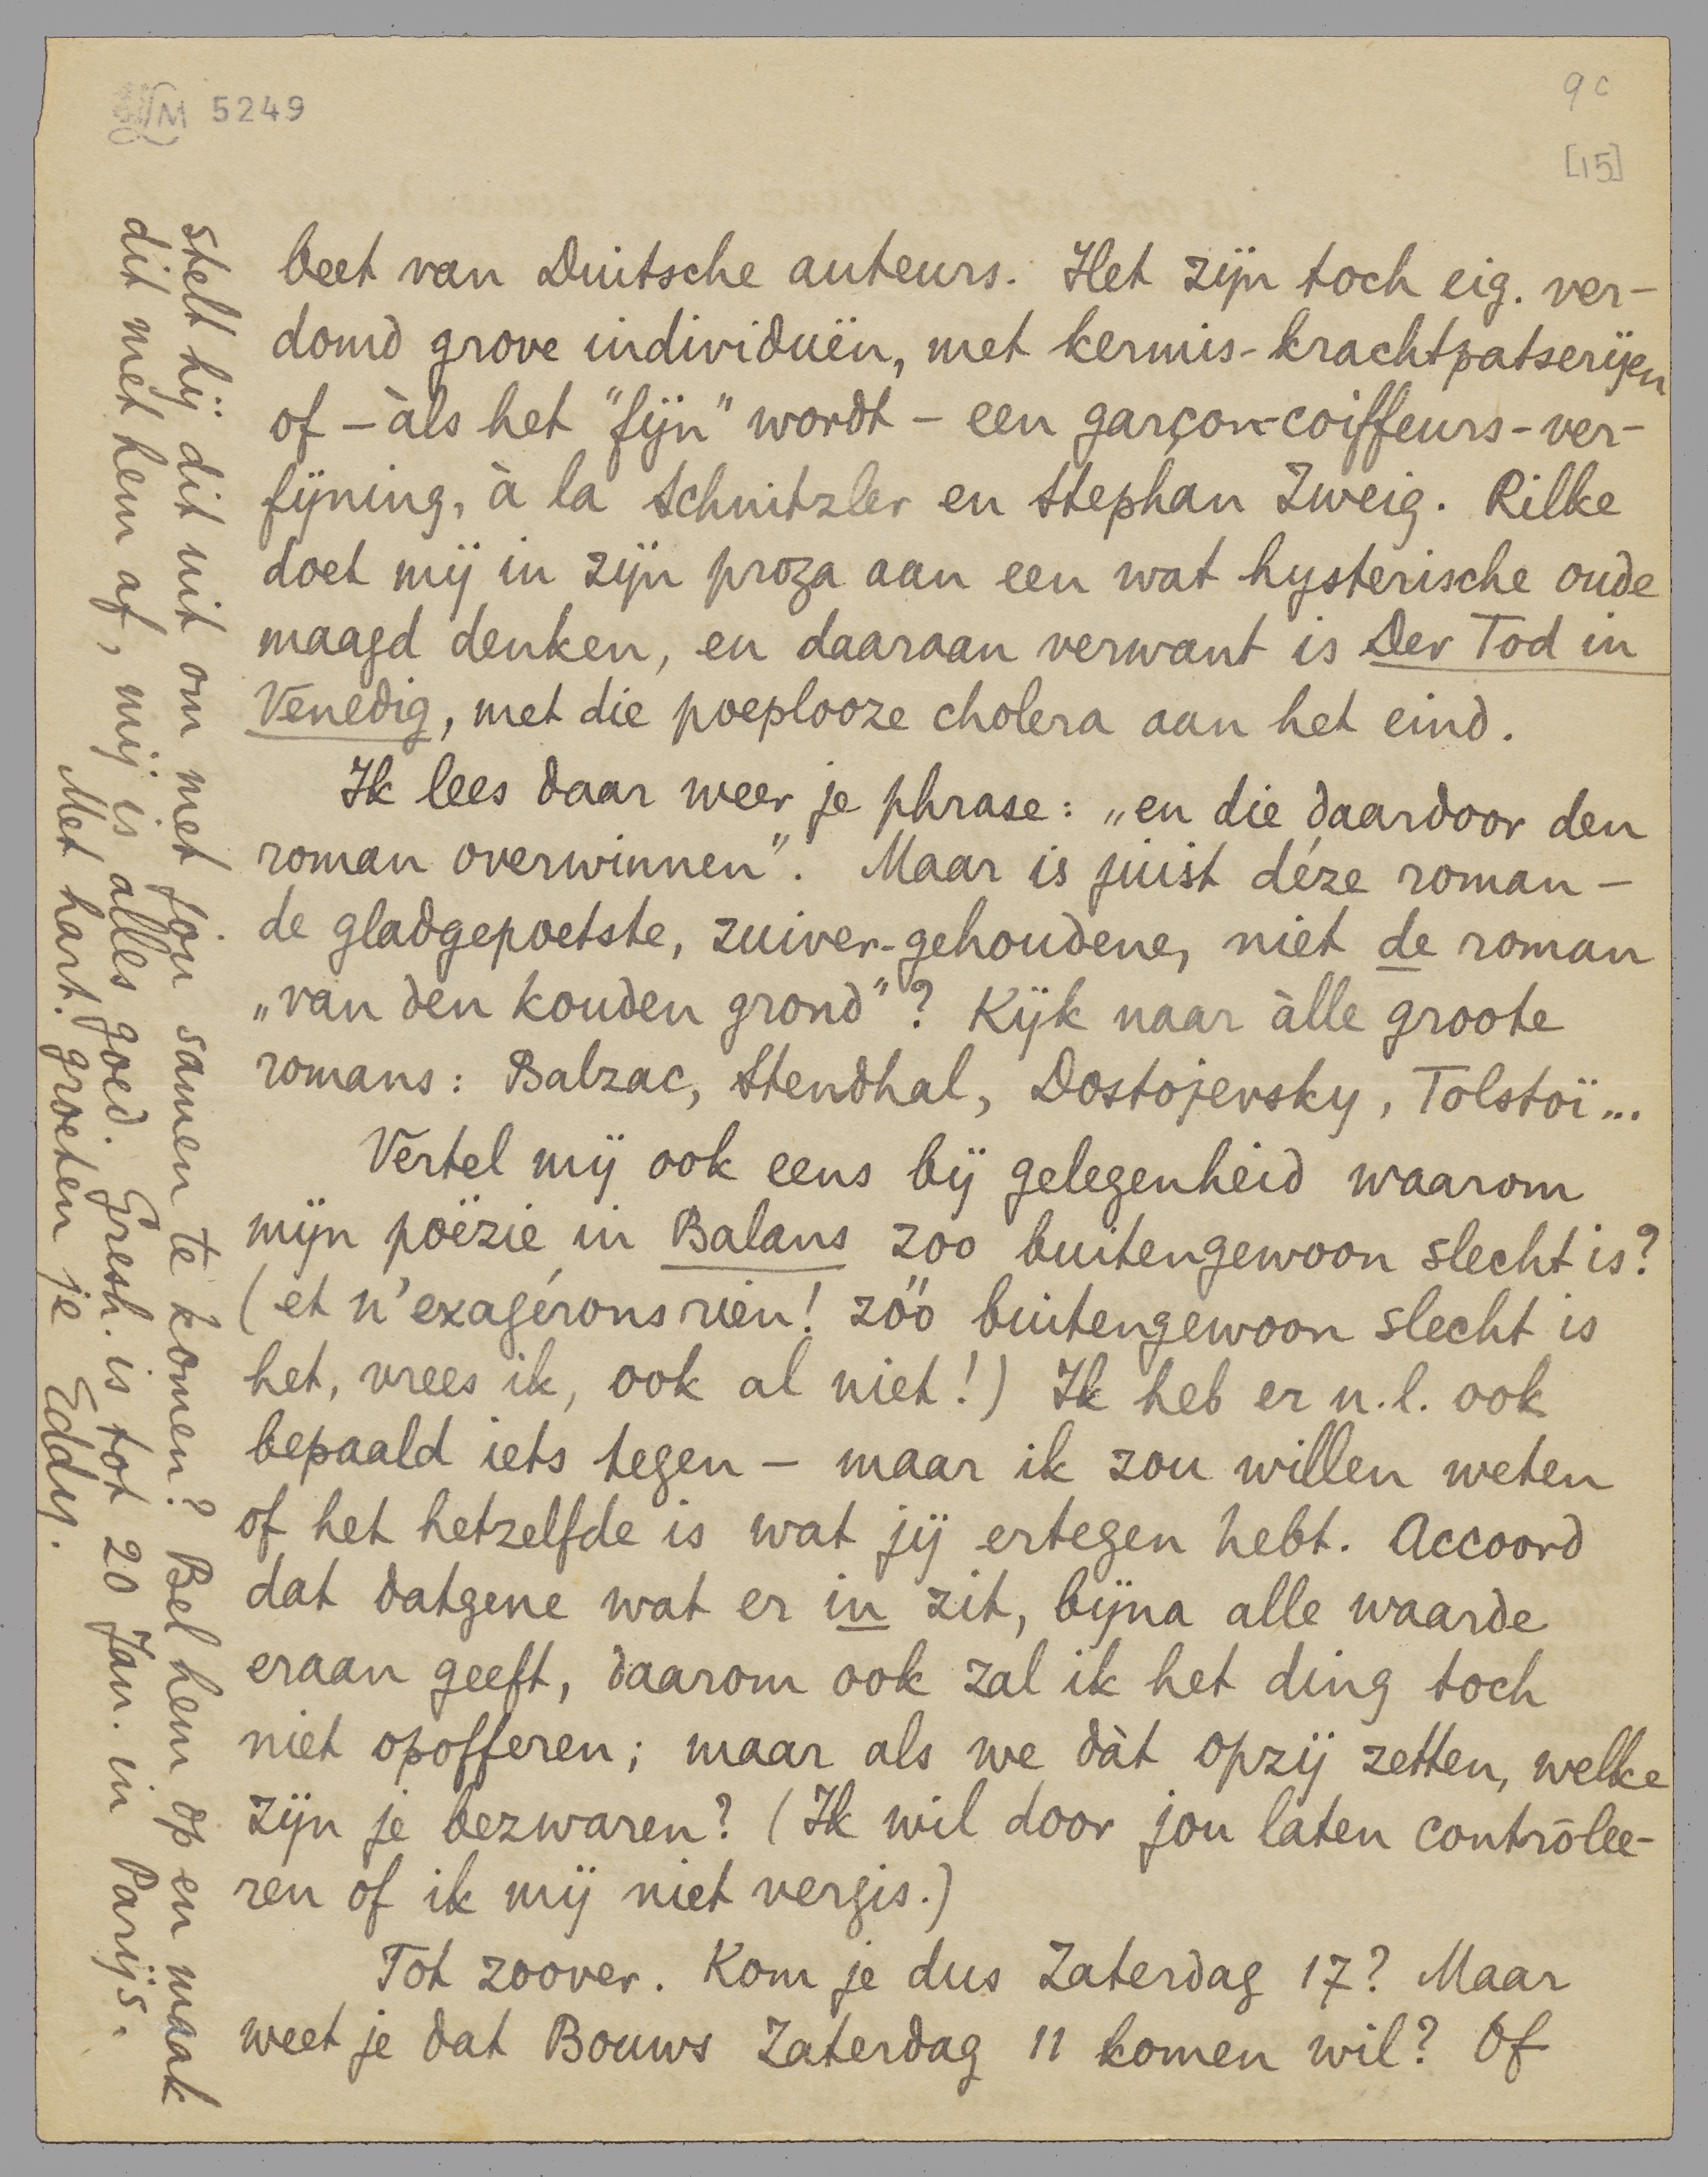 LM 5249
9c
[15]
beet van Duitsche auteurs. Het zijn toch eig. ver-
domd grove individuën, met kermis-krachtpatserijen
of – àls het "fijn" wordt – een garçon-coiffeurs-ver-
fijning, à la Schnitzler en Stephan Zweig. Rilke
doet mij in zijn proza aan een wat hysterische oude
maagd denken, en daaraan verwant is Der Tod in
Venedig, met die poeplooze cholera aan het eind.
Ik lees daar weer je phrase: „en die daardoor den
roman overwinnen". Maar is juist déze roman –
de gladgepoetste, zuiver-gehoudene, niet de roman
„van den kouden grond"? Kijk naar àlle groote
romans: Balzac, Stendhal, Dostojevsky, Tolstoï...
Vertel mij ook eens bij gelegenheid waarom
mijn poëzie in Balans zoo buitengewoon slecht is?
(et n'exagérons rien! zóó buitengewoon slecht is
het, vrees ik, ook al niet!) Ik heb er n.l. ook
bepaald iets tegen – maar ik zou willen weten
of het hetzelfde is wat jij ertegen hebt. Accoord
dat datgene wat er in zit, bijna alle waarde
eraan geeft, daarom ook zal ik het ding toch
niet opofferen; maar als we dàt opzij zetten, welke
zijn je bezwaren? (Ik wil door jou laten contrôlee-
ren of ik mij niet vergis.)
Tot zoover. Kom je dus Zaterdag 17? Maar
weet je dat Bouws Zaterdag 11 komen wil? Of
stelt hij dit uit om met jou samen te komen? Bel hem op en maak
dit met hem af, mij is alles goed. Gresh. is tot 20 Jan. in Parijs.
Met hart. groeten je Eddy.